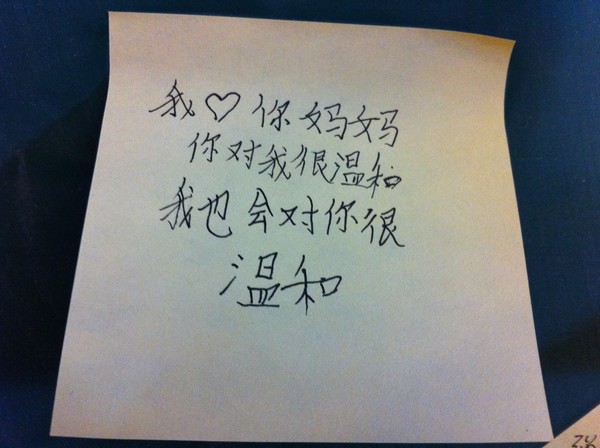 我♡你妈妈
你对我很温和
我也会对你很
温和
28